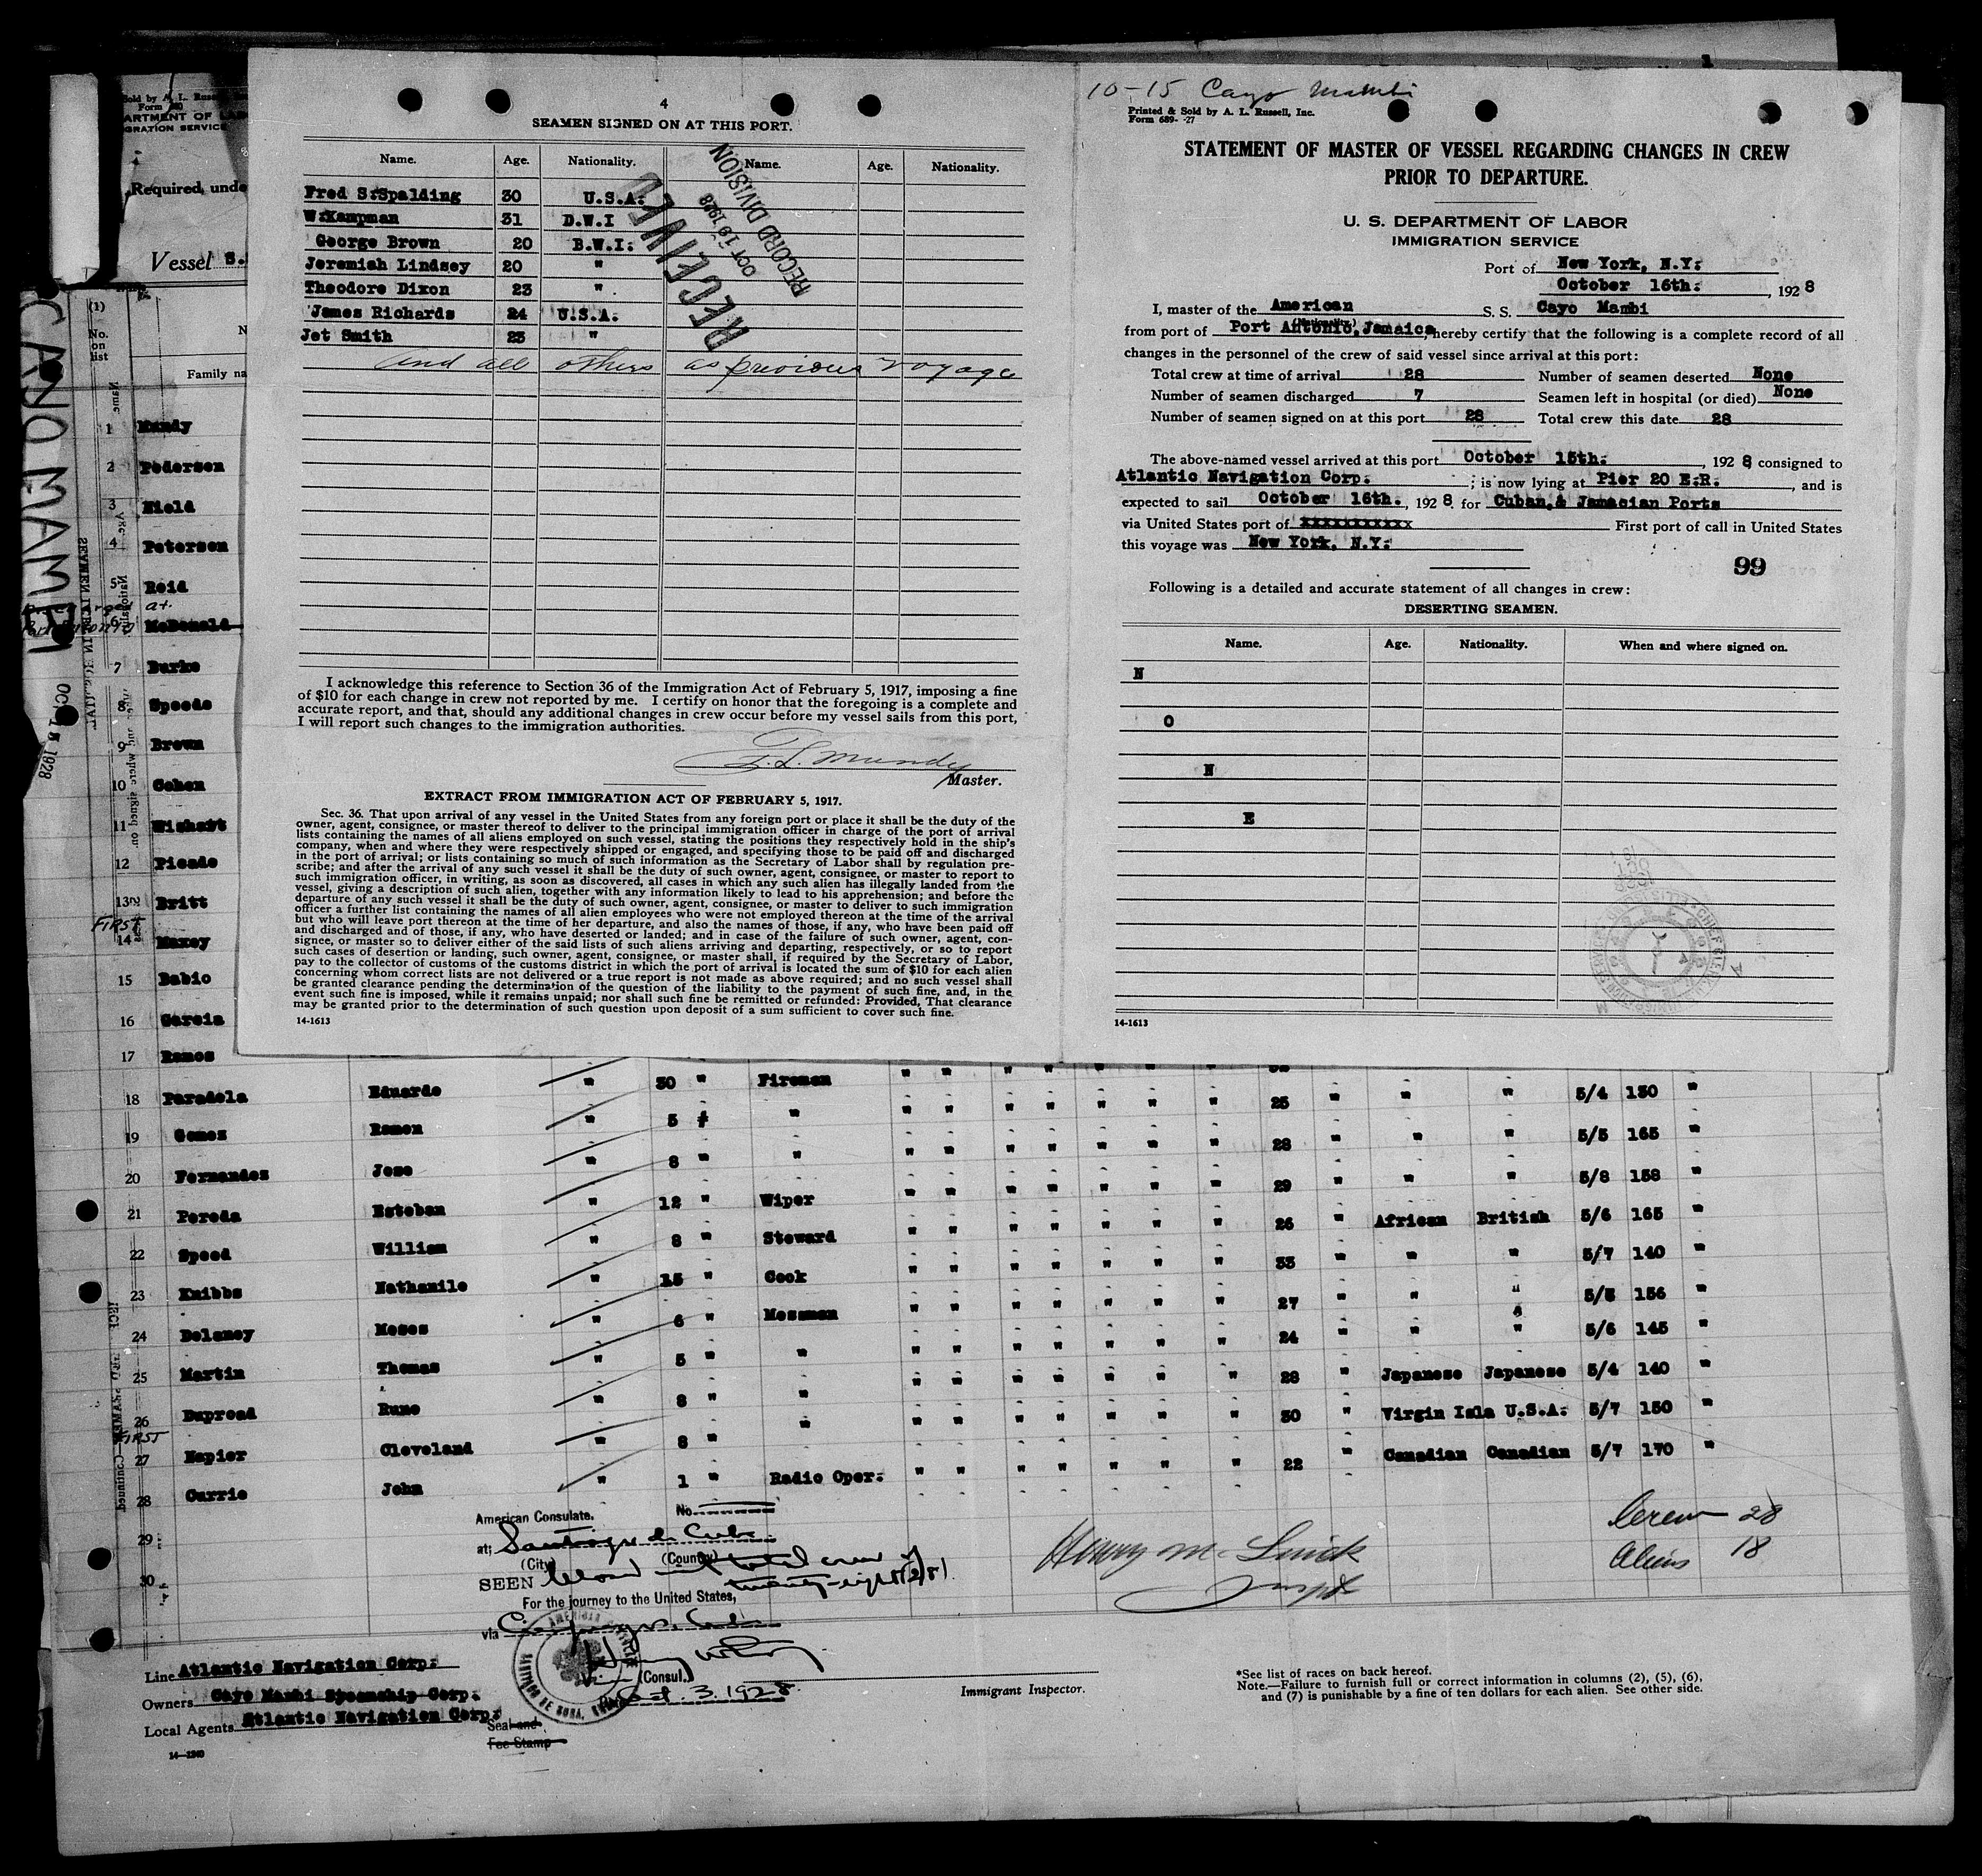 4
SEAMEN SIGNED ON AT THIS PORT.
Name. Age. Nationality. Name. Age. Nationality.
Fred S:Spalding 30 U.S.A:
W:Kampman 31 D.W.I
George Brown 20 B.W.I:
Jeremiah Lindsey 20 "
Theodore Dixon 23 "
James Richards 24 U.S.A:
Jet Smith 23 "
and all others as previous voyage
RECEIVED
OCT 19 1928
RECORD DIVISION
I acknowledge this reference to Section 36 of the Immigration Act of February 5, 1917, imposing a fine
of $10 for each change in crew not reported by me. I certify on honor that the foregoing is a complete and
accurate report, and that, should any additional changes in crew occur before my vessel sails from this port,
I will report such changes to the immigration authorities.
Mundy
Master.
EXTRACT FROM IMMIGRATION ACT OF FEBRUARY 5, 1917.
Sec. 36. That upon arrival of any vessel in the United States from any foreign port or place it shall be the duty of the
owner, agent, consignee, or master thereof to deliver to the principal immigration officer in charge of the port of arrival
lists containing the names of all aliens employed on such vessel, stating the positions they respectively hold in the ship's
company, when and where they were respectively shipped or engaged, and specifying those to be paid off and discharged
in the port of arrival; or lists containing so much of such information as the Secretary of Labor shall by regulation pre-
scribe; and after the arrival of any such vessel it shall be the duty of such owner, agent, consignee, or master to report to
such immigration officer, in writing, as soon as discovered, all cases in which any such alien has illegally landed from the
vessel, giving a description of such alien, together with any information likely to lead to his apprehension; and before the
departure of any such vessel it shall be the duty of such owner, agent, consignee, or master to deliver to such immigration
officer a further list containing the names of all alien employees who were not employed thereon at the time of the arrival
but who will leave port thereon at the time of her departure, and also the names of those, if any, who have been paid off
and discharged and of those, if any, who have deserted or landed; and in case of the failure of such owner, agent, con-
signee, or master so to deliver either of the said lists of such aliens arriving and departing, respectively, or so to report
such cases of desertion or landing, such owner, agent, consignee, or master shall, if required by the Secretary of Labor,
pay to the collector of customs of the customs district in which the port of arrival is located the sum of $10 for each alien
concerning whom correct lists are not delivered or a true report is not made as above required; and no such vessel shall
be granted clearance pending the determination of the question of the liability to the payment of such fine, and, in the
event such fine is imposed, while it remains unpaid; nor shall such fine be remitted or refunded: Provided, That clearance
may be granted prior to the determination of such question upon deposit of a sum sufficient to cover such fine.
14-1613
10-15 Cayo Mambi
Printed & Sold by A. L. Russell, Inc.
Form 689- -27
STATEMENT OF MASTER OF VESSEL REGARDING CHANGES IN CREW
PRIOR TO DEPARTURE.
U. S. DEPARTMENT OF LABOR
IMMIGRATION SERVICE
Port of New York, N.Y:
October 16th: , 1928
I, master of the American S. S. Cayo Mambi
(Nationality)
from port of Port Antonio, Jamaica, hereby certify that the following is a complete record of all
changes in the personnel of the crew of said vessel since arrival at this port:
Total crew at time of arrival 28 Number of seamen deserted None
Number of seamen discharged 7 Seamen left in hospital (or died) None
Number of seamen signed on at this port 28 Total crew this date 28
The above-named vessel arrived at this port October 15th: , 1928 consigned to
Atlantic Navigation Corp. ; is now lying at Pier 20 E.R. , and is
expected to sail October 16th. , 1928. for Cuban,& Jamacian Ports
via United States port of xxxxxxxxxxx First port of call in United States
this voyage was New York, N.Y:
99
Following is a detailed and accurate statement of all changes in crew:
DESERTING SEAMEN.
Name. Age. Nationality. When and where signed on.
N
O
N
E
14-1613
CAYO MAMBI
OCT 15 1928
Required, unde
Vessel S.
(1)
No.
on
list
Family na
1 Mundy
2 Pedersen
3 Nield
4 Petersen
5 Reid
at
6 McDonald
7 Burke
8 Speede
9 Brown
10 Cohen
11 Wishart
12 Picado
13 Britt
FIRST
14 Maxey
15 Babio
16 Garcia
17 Ramos
18 Paradela Eduardo " 30 " Fireman
19 Gomez Ramon " 5 " " 25 " " " 5/4 130 "
20 Fernandez Jose " 8 " " 28 " " " 5/5 165 "
21 Pereda Esteban " 12 " Wiper 29 " " " 5/8 158 "
22 Speed William " 8 " Steward 26 " African British 5/6 165 "
23 Knibbs Nathanile " 15 " Cook 33 " " " 5/7 140 "
24 Delaney Moses " 6 " Messman 27 " " " 5/5 156 "
25 Martin Thomas " 5 " " 24 " " " 5/6 145 "
26 Dupread Rune " 8 " " 28 " Japanese Japanese 5/4 140 "
FIRST
27 Napier Cleveland " 8 " " 30 " Virgin Isla U.S.A: 5/7 150
28 Currie John " 1 " Radio Oper: 22 " Canadian Canadian 5/7 170 "
29
30
American Consulate. No.
at Santiago de Cuba
(City) (Country)
SEEN total crew of
twenty-eight (28)
For the journey to the United States,
via
(Consul.)
Oct. 3. 1928
Seal and
Fee Stamp
Crew 28
Aliens 18
Line Atlantic Navigation Corp:
Owners Cayo Mambi Steamship Corp.
Local Agents Atlantic Navigation Corp:
14-1240
Immigrant Inspector.
*See list of races on back hereof.
Note.—Failure to furnish full or correct information in columns (2), (5), (6),
and (7) is punishable by a fine of ten dollars for each alien. See other side.